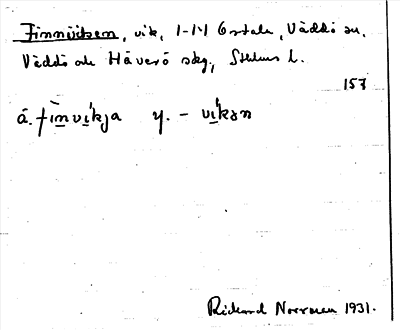 Finnviken, vik, 1-141 Gstale, Väddö sn,
Väddö och Häverö skg, Sthlms l.
157
á. finvikja y. - vikən
Rickard Norrman 1931.